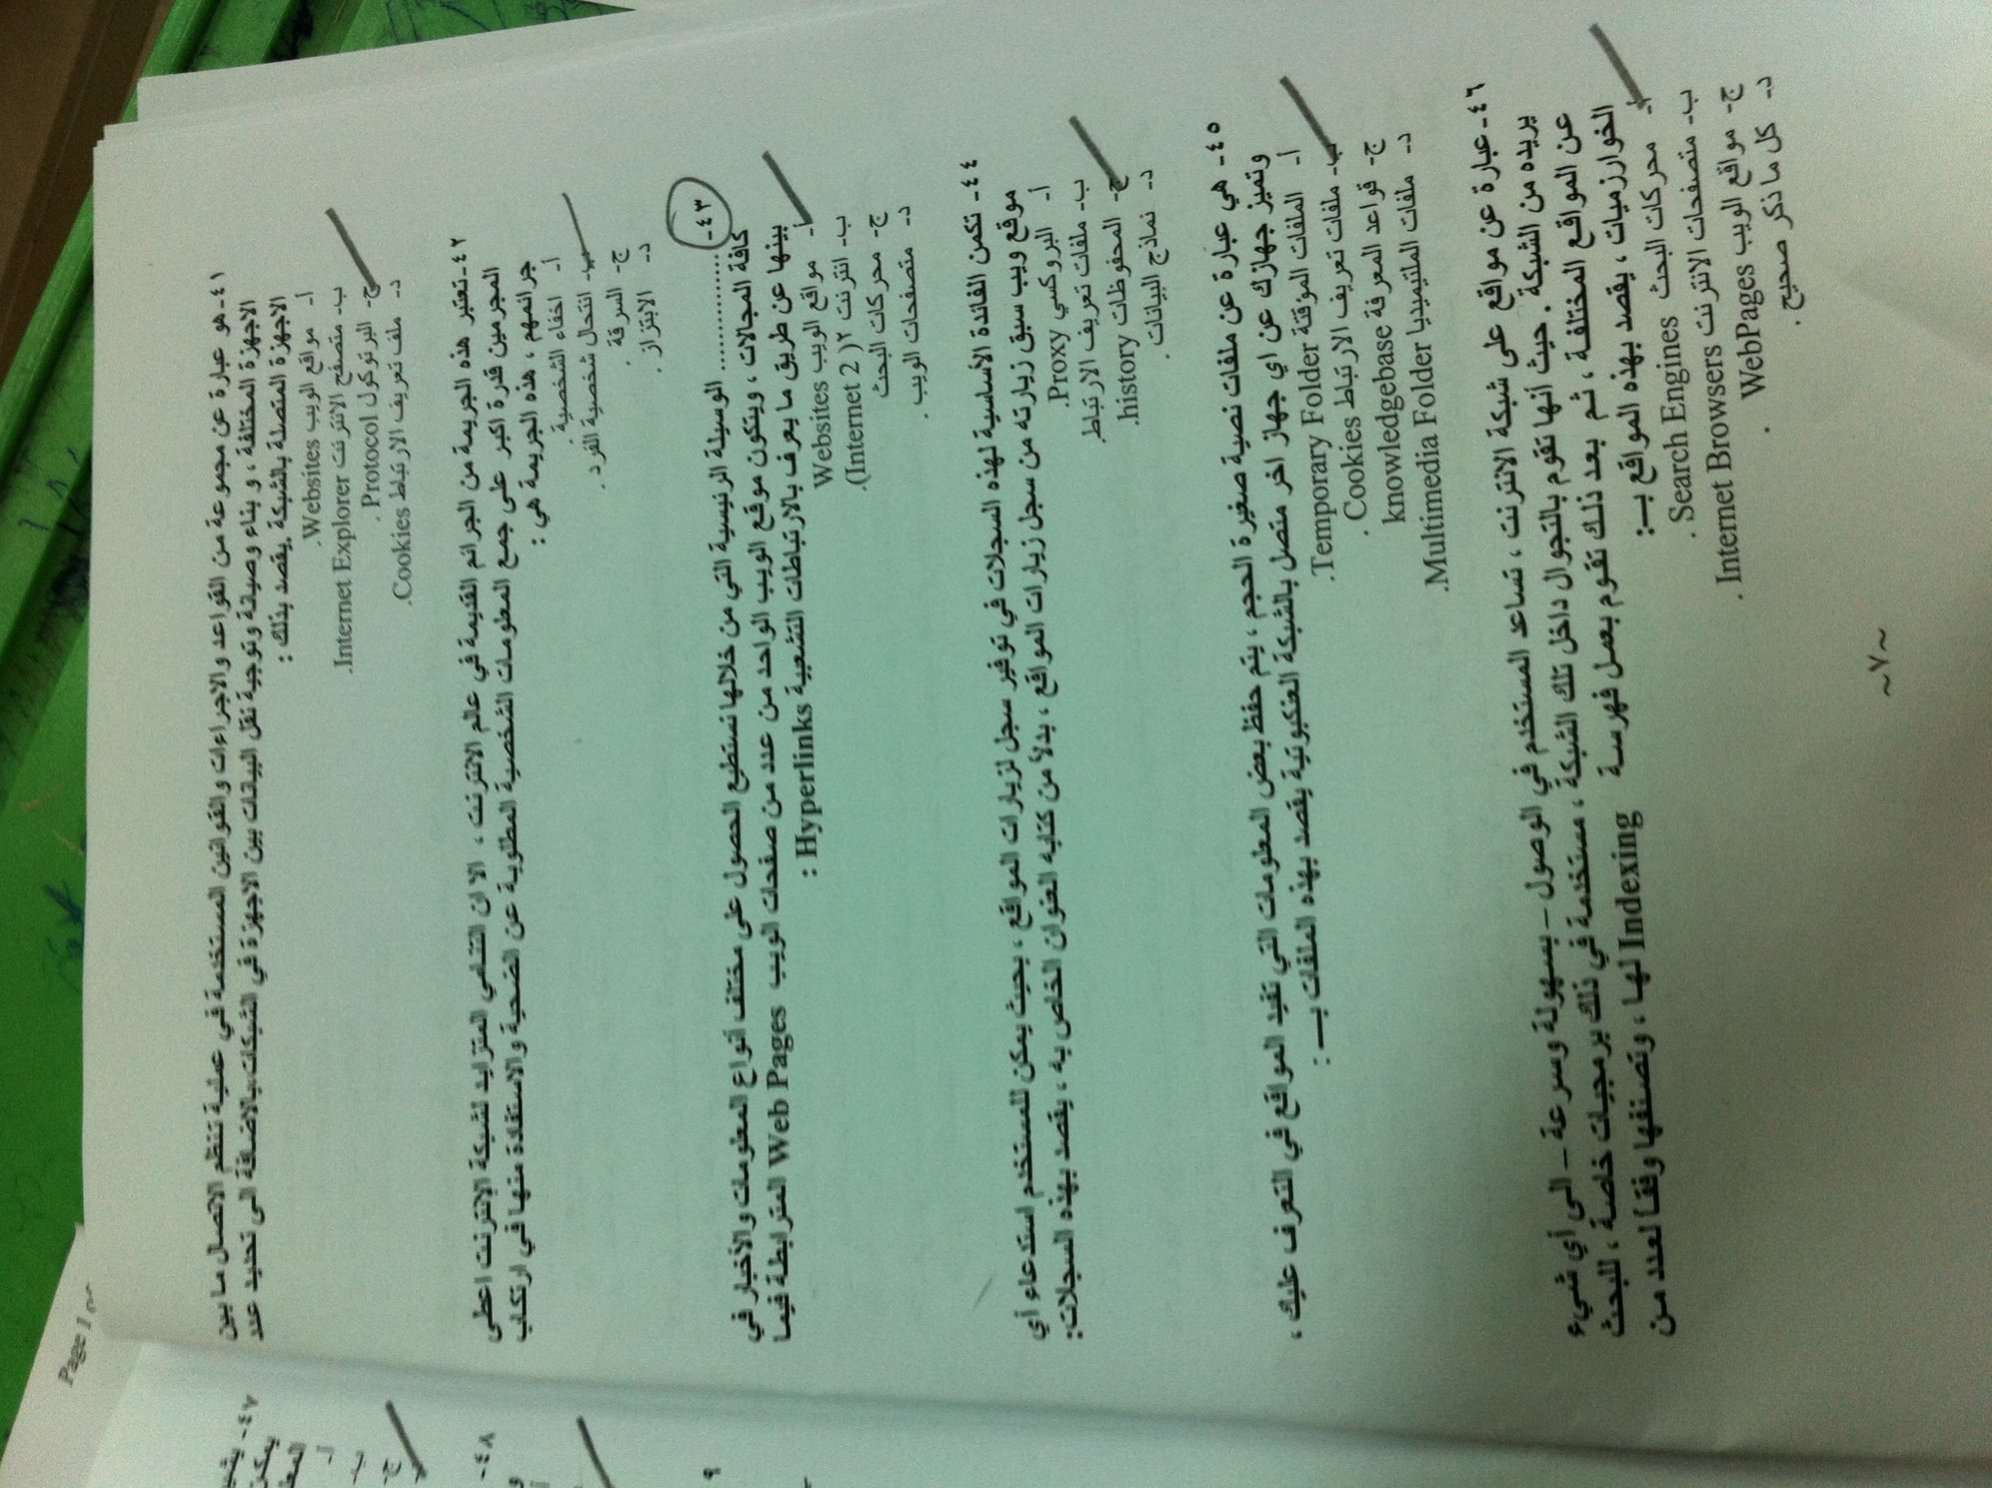 ٤١- هو عبارة عن مجموعة من القواعد والاجراءات والقوانين المستخدمة في عملية تنظم الاتصال ما بين
الاجهزة المختلفة ، و بناء وصيانة وتوجية نقل البيانات بين الاجهزة في الشبكات بالاضافة الى تحديد عدد
الاجهزة المتصلة بالشبكة يقصد بذلك :
أ- مواقع الويب Websites .
ب- متصفح الانترنت Internet Explorer.
ج- البرتوكول Protocol .
د- ملف تعريف الارتباط Cookies.
٤٢- تعتبر هذه الجريمة من الجرائم القديمة في عالم الانترنت ، الا ان التنامي المتزايد لشبكة الإنترنت اعطى
المجرمين قدرة اكبر على جمع المعلومات الشخصية المطلوبة عن الضحية والاستفادة منها في ارتكاب
جرائمهم ، هذه الجريمة هي :
أ- اخفاء الشخصية .
ب- انتحال شخصية الفرد .
ج- السرقة .
د- الابتزاز .
٤٣- .............. الوسيلة الرئيسية التي من خلالها نستطيع الحصول على مختلف أنواع المعلومات والأخبار في
كافة المجالات ، ويتكون موقع الويب الواحد من عدد من صفحات الويب Web Pages المترابطة فيما
بينها عن طريق ما يعرف بالارتباطات التشعبية Hyperlinks :
أ- مواقع الويب Websites
ب- انترنت ٢ (Internet 2).
ج- محركات البحث
د- متصفحات الويب .
٤٤- تكمن الفائدة الأساسية لهذه السجلات في توفير سجل لزيارات المواقع ، بحيث يمكن للمستخدم استدعاء أي
موقع ويب سبق زيارته من سجل زيارات المواقع ، بدلاً من كتابه العنوان الخاص به ، يقصد بهذه السجلات:
أ- البروكسي Proxy.
ب- ملفات تعريف الارتباط.
ج- المحفوظات history.
د- نماذج البيانات .
٤٥- هي عبارة عن ملفات نصية صغيرة الحجم ، يتم حفظ بعض المعلومات التي تفيد المواقع في التعرف عليك ،
وتميز جهازك عن اي جهاز اخر متصل بالشبكة العنكبوتية يقصد بهذه الملفات بـــ :
أ- الملفات المؤقتة Temporary Folder.
ب- ملفات تعريف الارتباط Cookies .
ج- قواعد المعرفة knowledgebase
د- ملفات الملتيميديا Multimedia Folder.
٤٦- عبارة عن مواقع على شبكة الانترنت ، تساعد المستخدم في الوصول – بسهولة وسرعة – الى أي شيء
يريده من الشبكة . حيث أنها تقوم بالتجوال داخل تلك الشبكة ، مستخدمة في ذلك برمجيات خاصة ، للبحث
عن المواقع المختلفة ، ثم بعد ذلك تقوم بعمل فهرسة Indexing لها ، وتصنفها وفقاً لعدد من
الخوارزميات ، يقصد بهذه المواقع بـ:
أ- محركات البحث Search Engines .
ب- متصفحات الانترنت Internet Browsers .
ج- مواقع الويب WebPages .
د- كل ما ذكر صحيح .
~٧~
Page 1
٤٧-
٤٨-